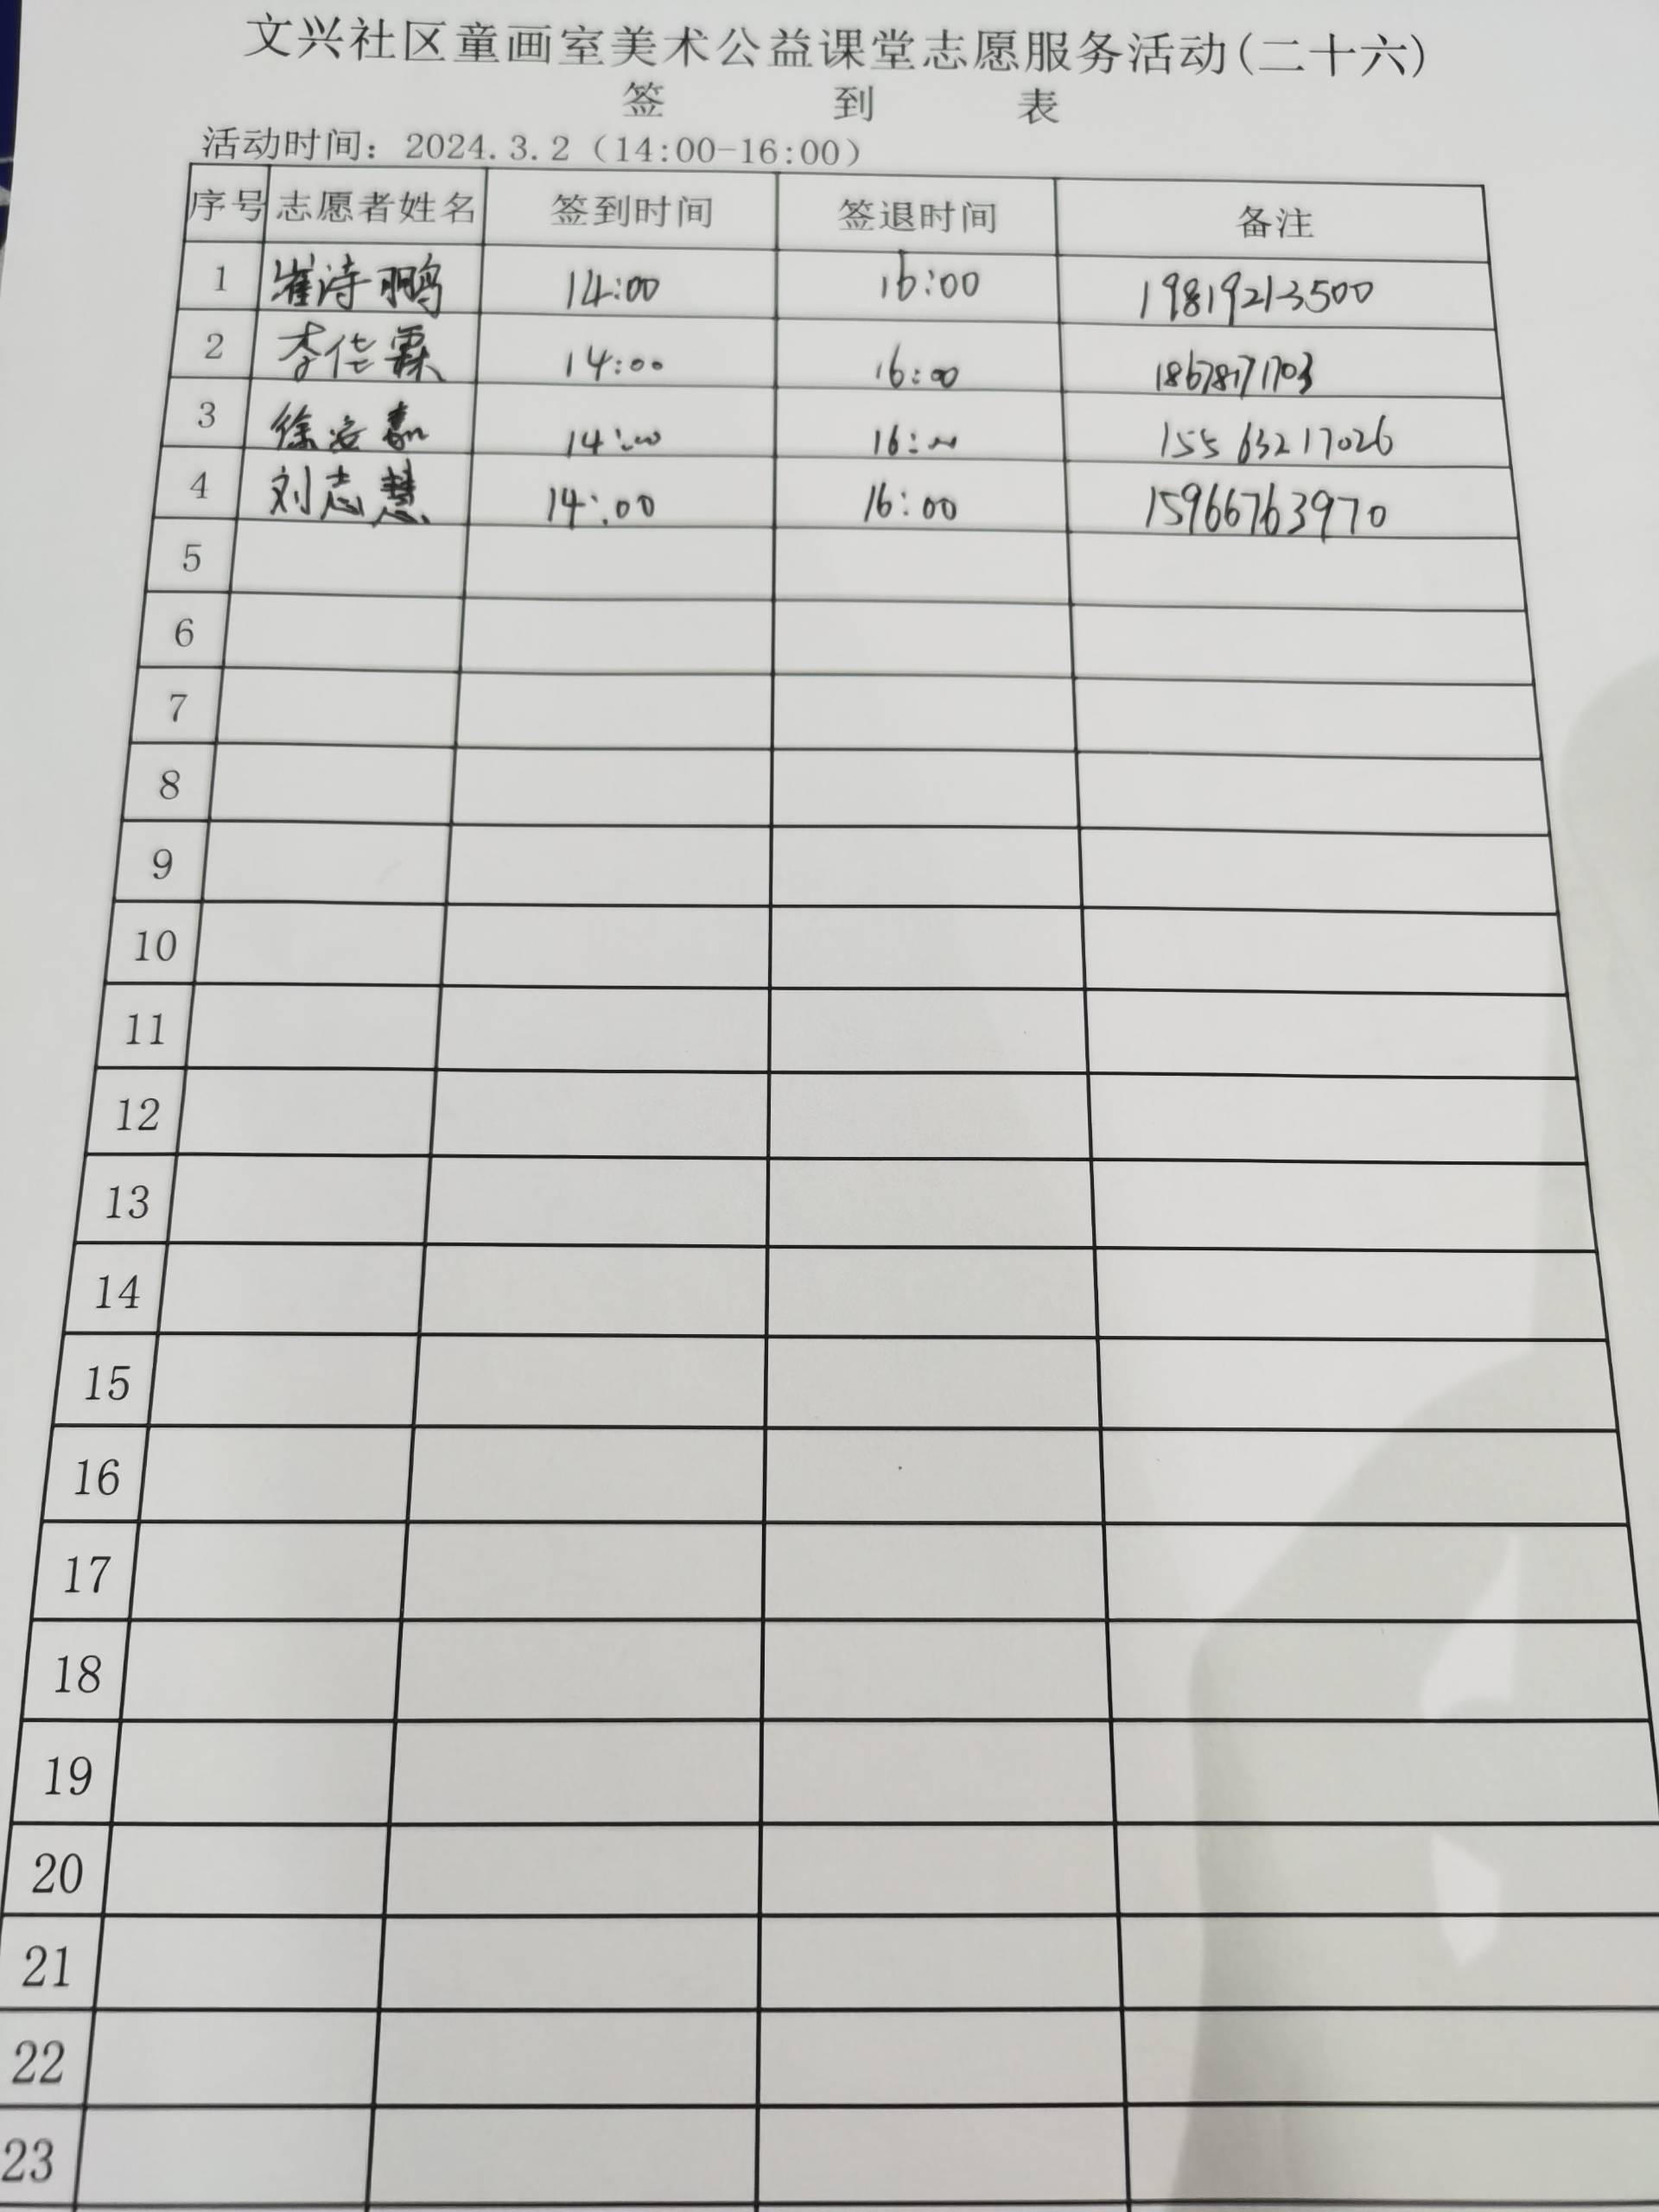 文兴社区童画室美术公益课堂志愿服务活动(二十六)
签 到 表
活动时间：2024.3.2（14:00-16:00）
序号 志愿者姓名 签到时间 签退时间 备注
1 崔诗鹏 14:00 16:00 19819213500
2 李佳霖 14:00 16:00 18678171703
3 徐安嘉 14:00 16:00 15563217026
4 刘志慧 14:00 16:00 15966763970
5
6
7
8
9
10
11
12
13
14
15
16
17
18
19
20
21
22
23